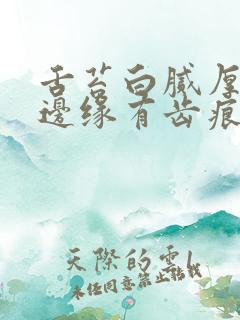 舌苔白腻厚
邊缘有齿痕
天際的雲l
未经同意禁止转载